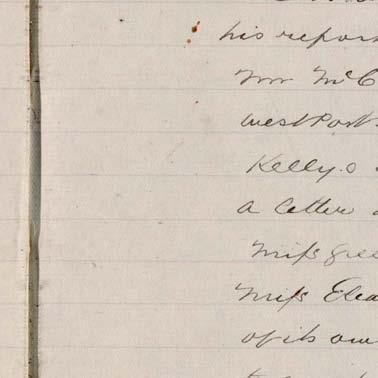 his repor
Mr McC
West Port
Kelly.s
a letter
Miſs Gree
Miſs Elea
of its own